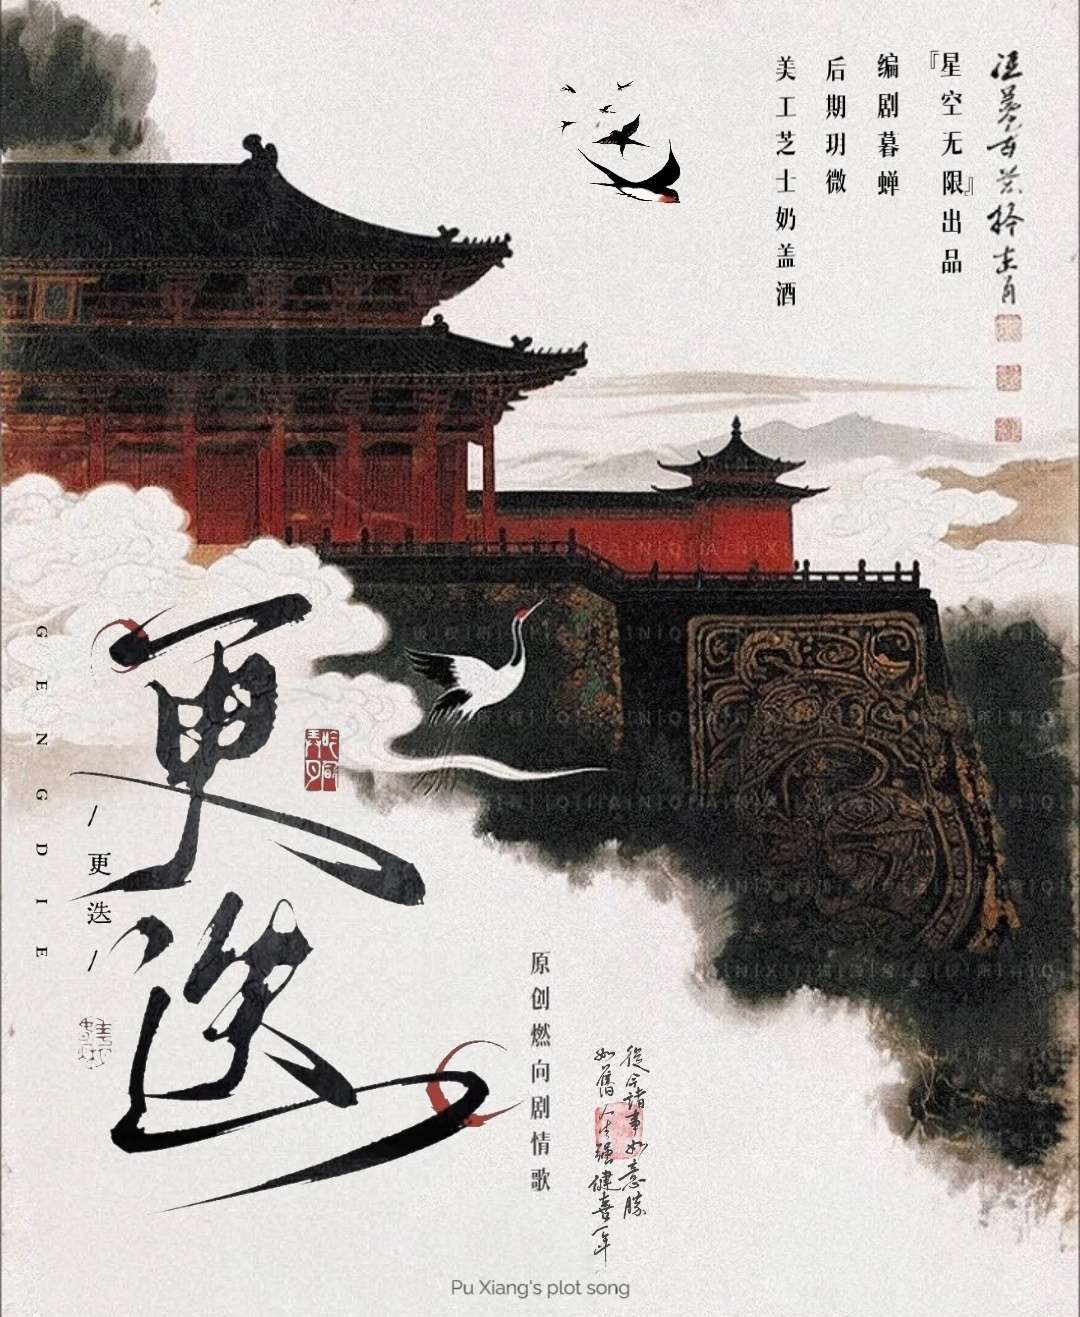 『星空无限』出品
编剧暮蝉
后期玥微
美工芝士奶盖酒
更迭
GENGDIE
/更迭/
原创燃向剧情歌
從今諸事如意勝
如舊人生强健喜年
Pu Xiang's plot song